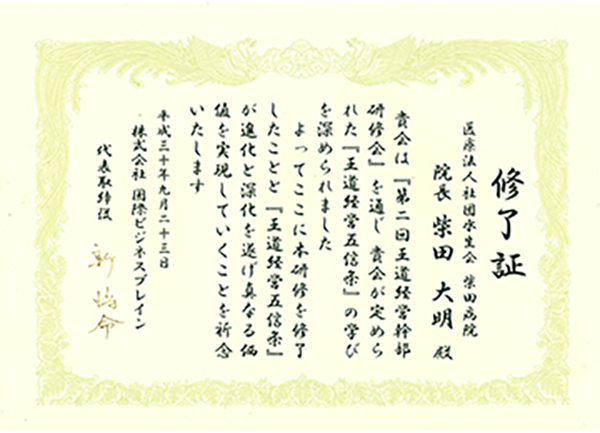 修了証
医療法人社団水生会 柴田病院
院長 柴田 大明 殿
貴会は『第二回王道経営幹部
研修会』を通じ貴会が定めら
れた『王道経営五信条』の学び
を深められました
よってここに本研修を修了
したことと『王道経営五信条』
が進化と深化を遂げ真なる価
値を実現していくことを祈念
いたします
平成三十年九月二十三日
株式会社 国際ビジネスブレイン
代表取締役
新